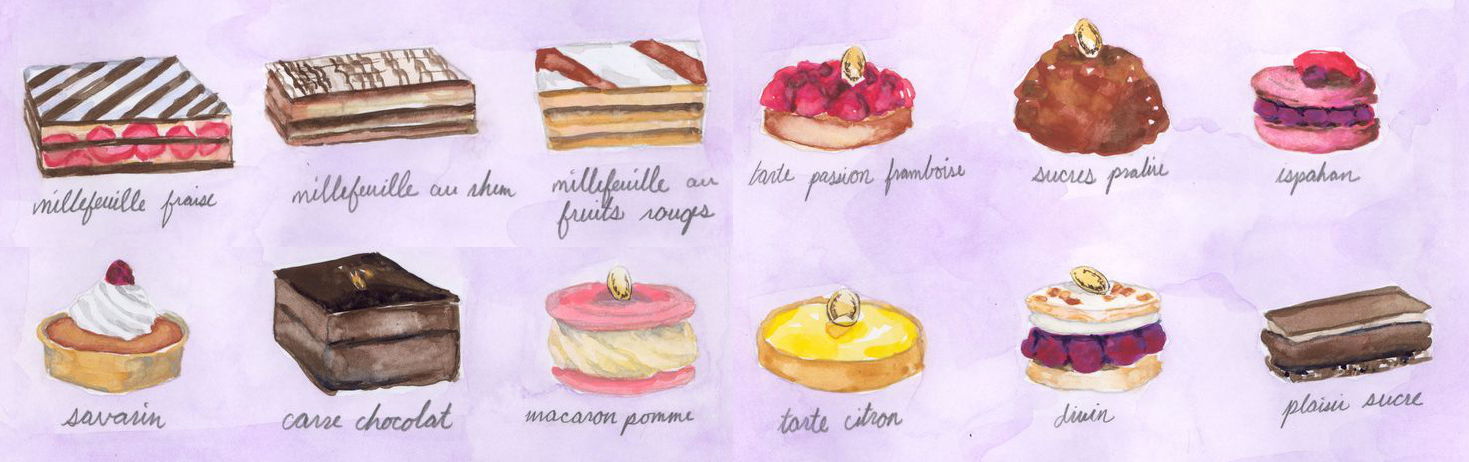 millefeuille fraise
millefeuille au rhum
millefeuille au
fruits rouges
tarte passion framboise
sucres praline
ispahan
savarin
carre chocolat
macaron pomme
tarte citron
divin
plaisir sucre